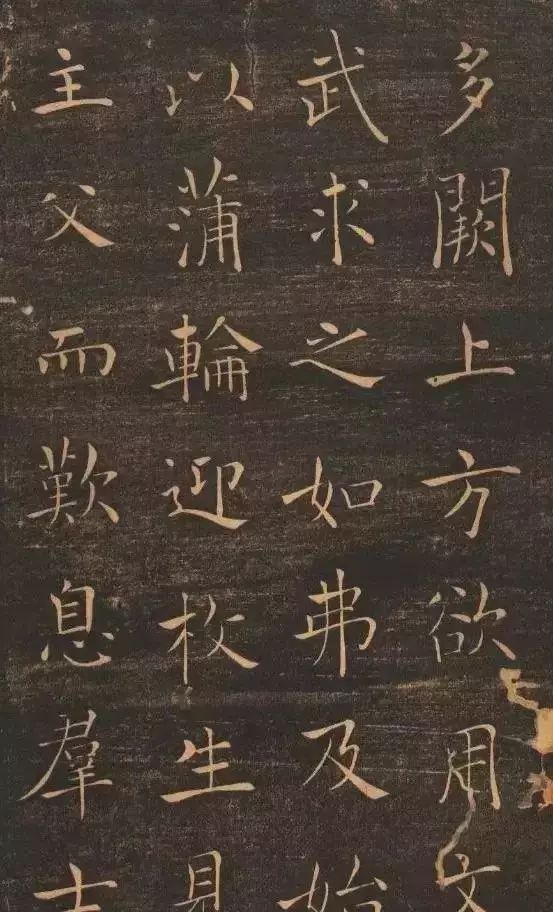 多闕上方欲用文
武求之如弗及始
以蒲輪迎枚生見
主父而歎息羣士